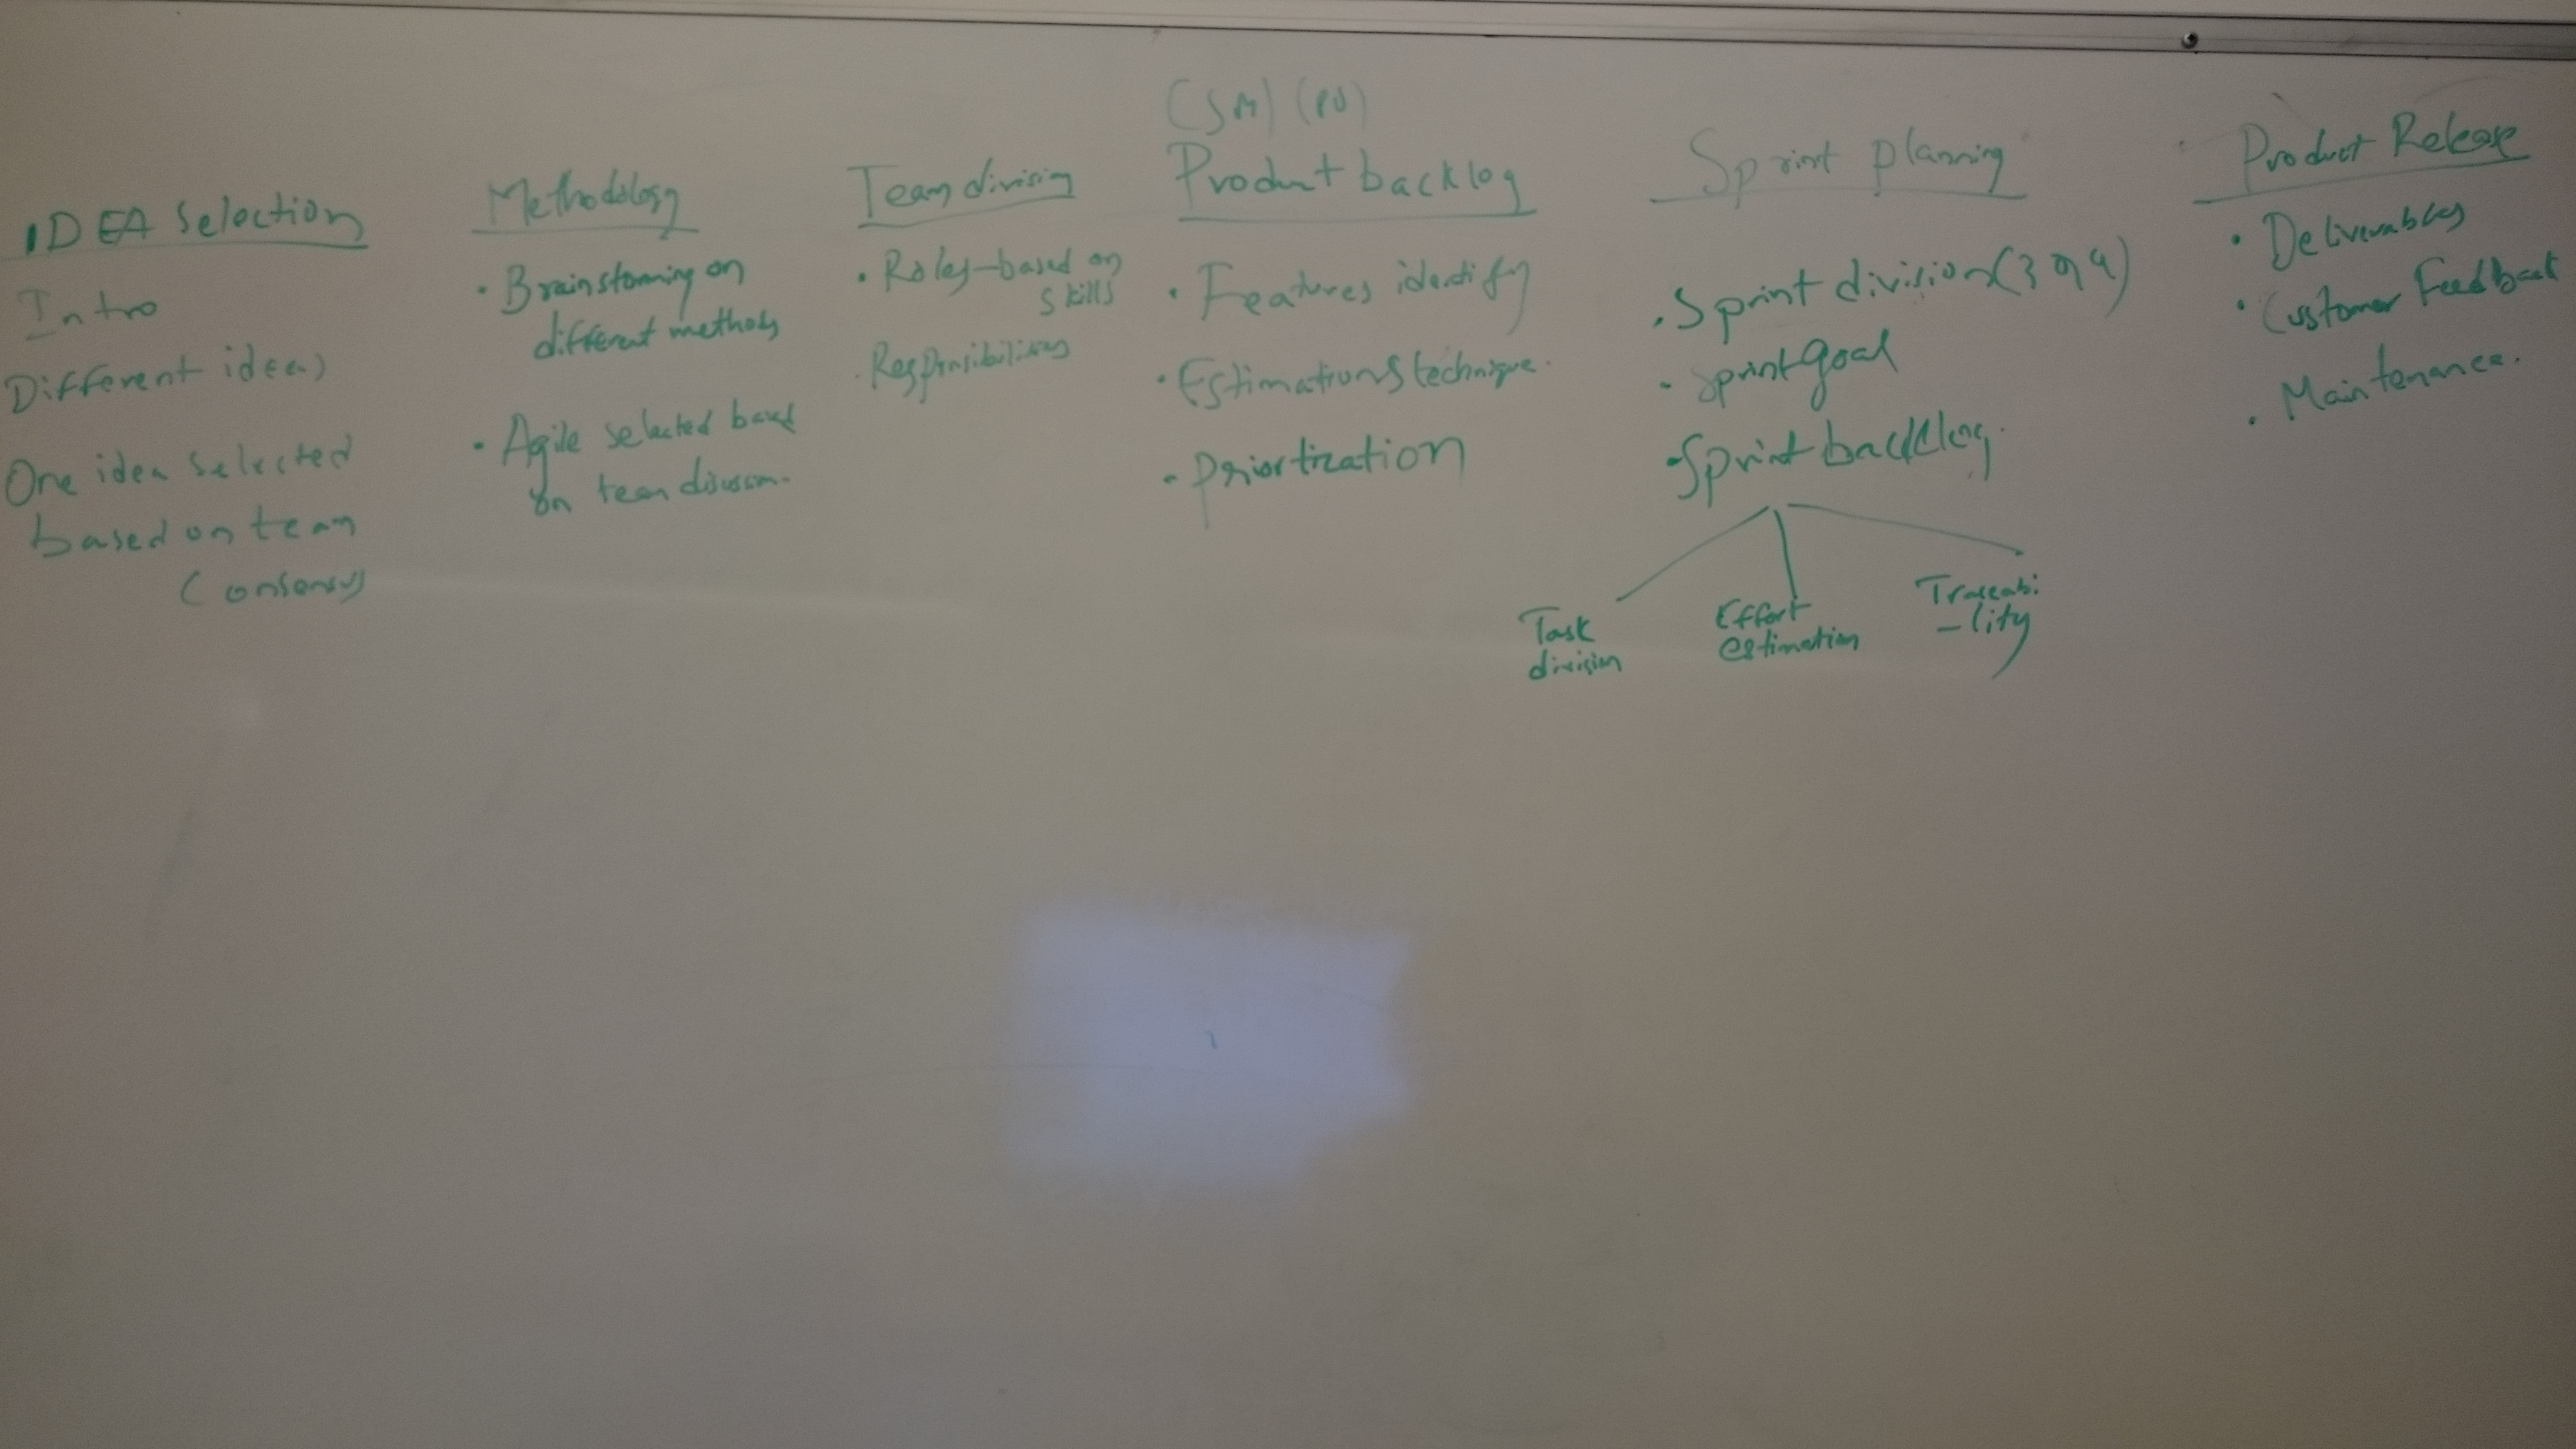 IDEA Selection
Intro
Different ideas
One idea selected
based on team
Consensus
Methodology
• Brainstorming on
different methods
• Agile selected based
on team discussion.
Team division
• Roles-based on
skills
• Responsibilities
(SM) (PO)
Product backlog
• Features identify
• Estimations technique.
• Priortization
Sprint planning
• Sprint division (3 or 4)
• Sprint Goal
• Sprint backlog
Task
division
Effort
estimation
Traceabi
-lity
Product Release
• Deliverables
• Customer Feedback
• Maintenance.